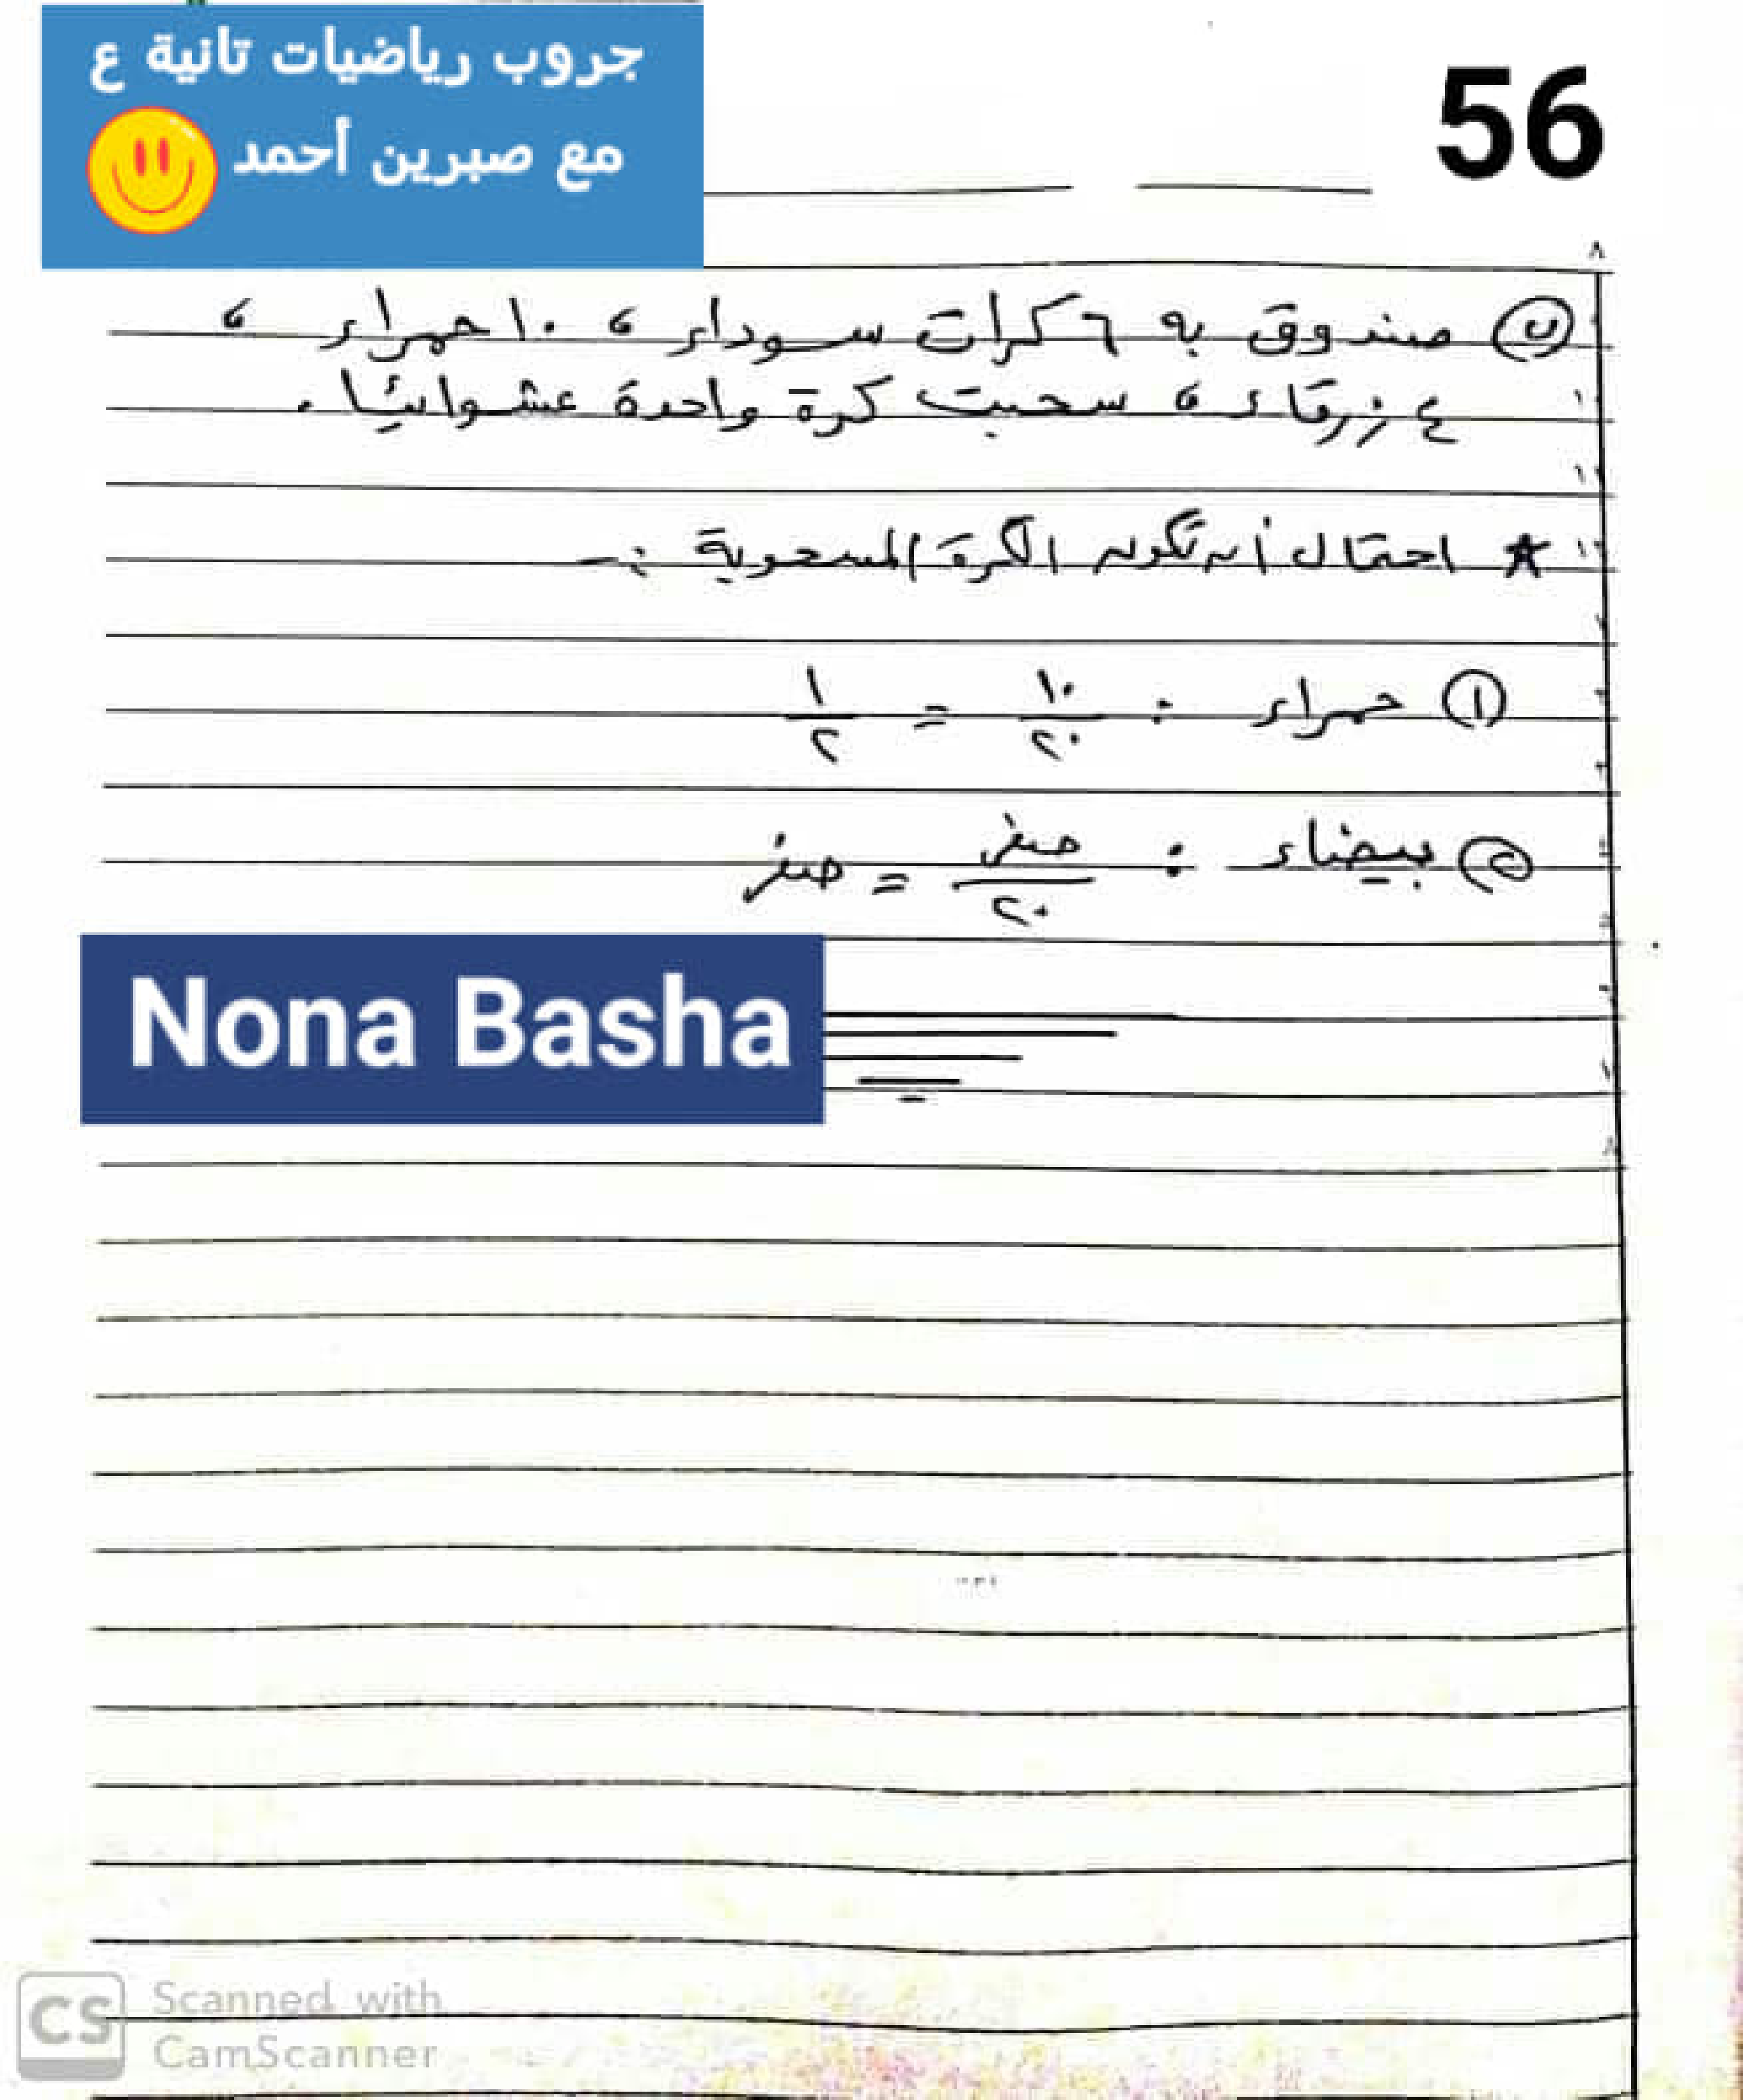 جروب رياضيات تانية ع
مع صبرين أحمد
56
ب صندوق به ٦ كرات سوداء ، ١٠ حمراء ،
٤ زرقاء ، سحبت كرة واحدة عشوائياً .
احتمال أن تكون الكرة المسحوبة :-
١ حمراء : ١٠/٢٠ = ١/٢
٢ بيضاء : صفر/٢٠ = صفر
Nona Basha
CS Scanned with
CamScanner